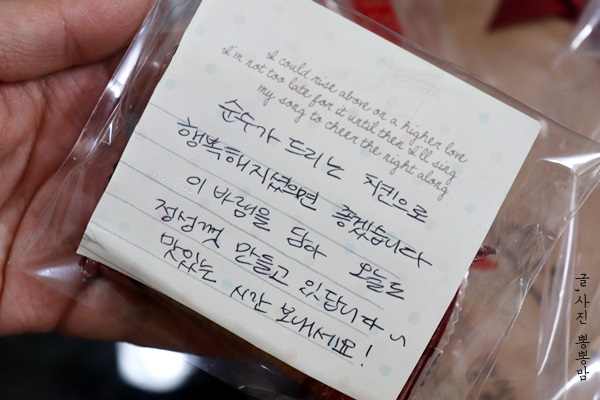 I could rise above on a higher love
I'm not too late for it until then I'll sing
my song to cheer the night along
순수가 드리는 치킨으로
행복해지셨으면 좋겠습니다
이 바램을 담아 오늘도
정성껏 만들고 있답니다~
맛있는 시간 보내세요!
글.사진 뽕뽕맘